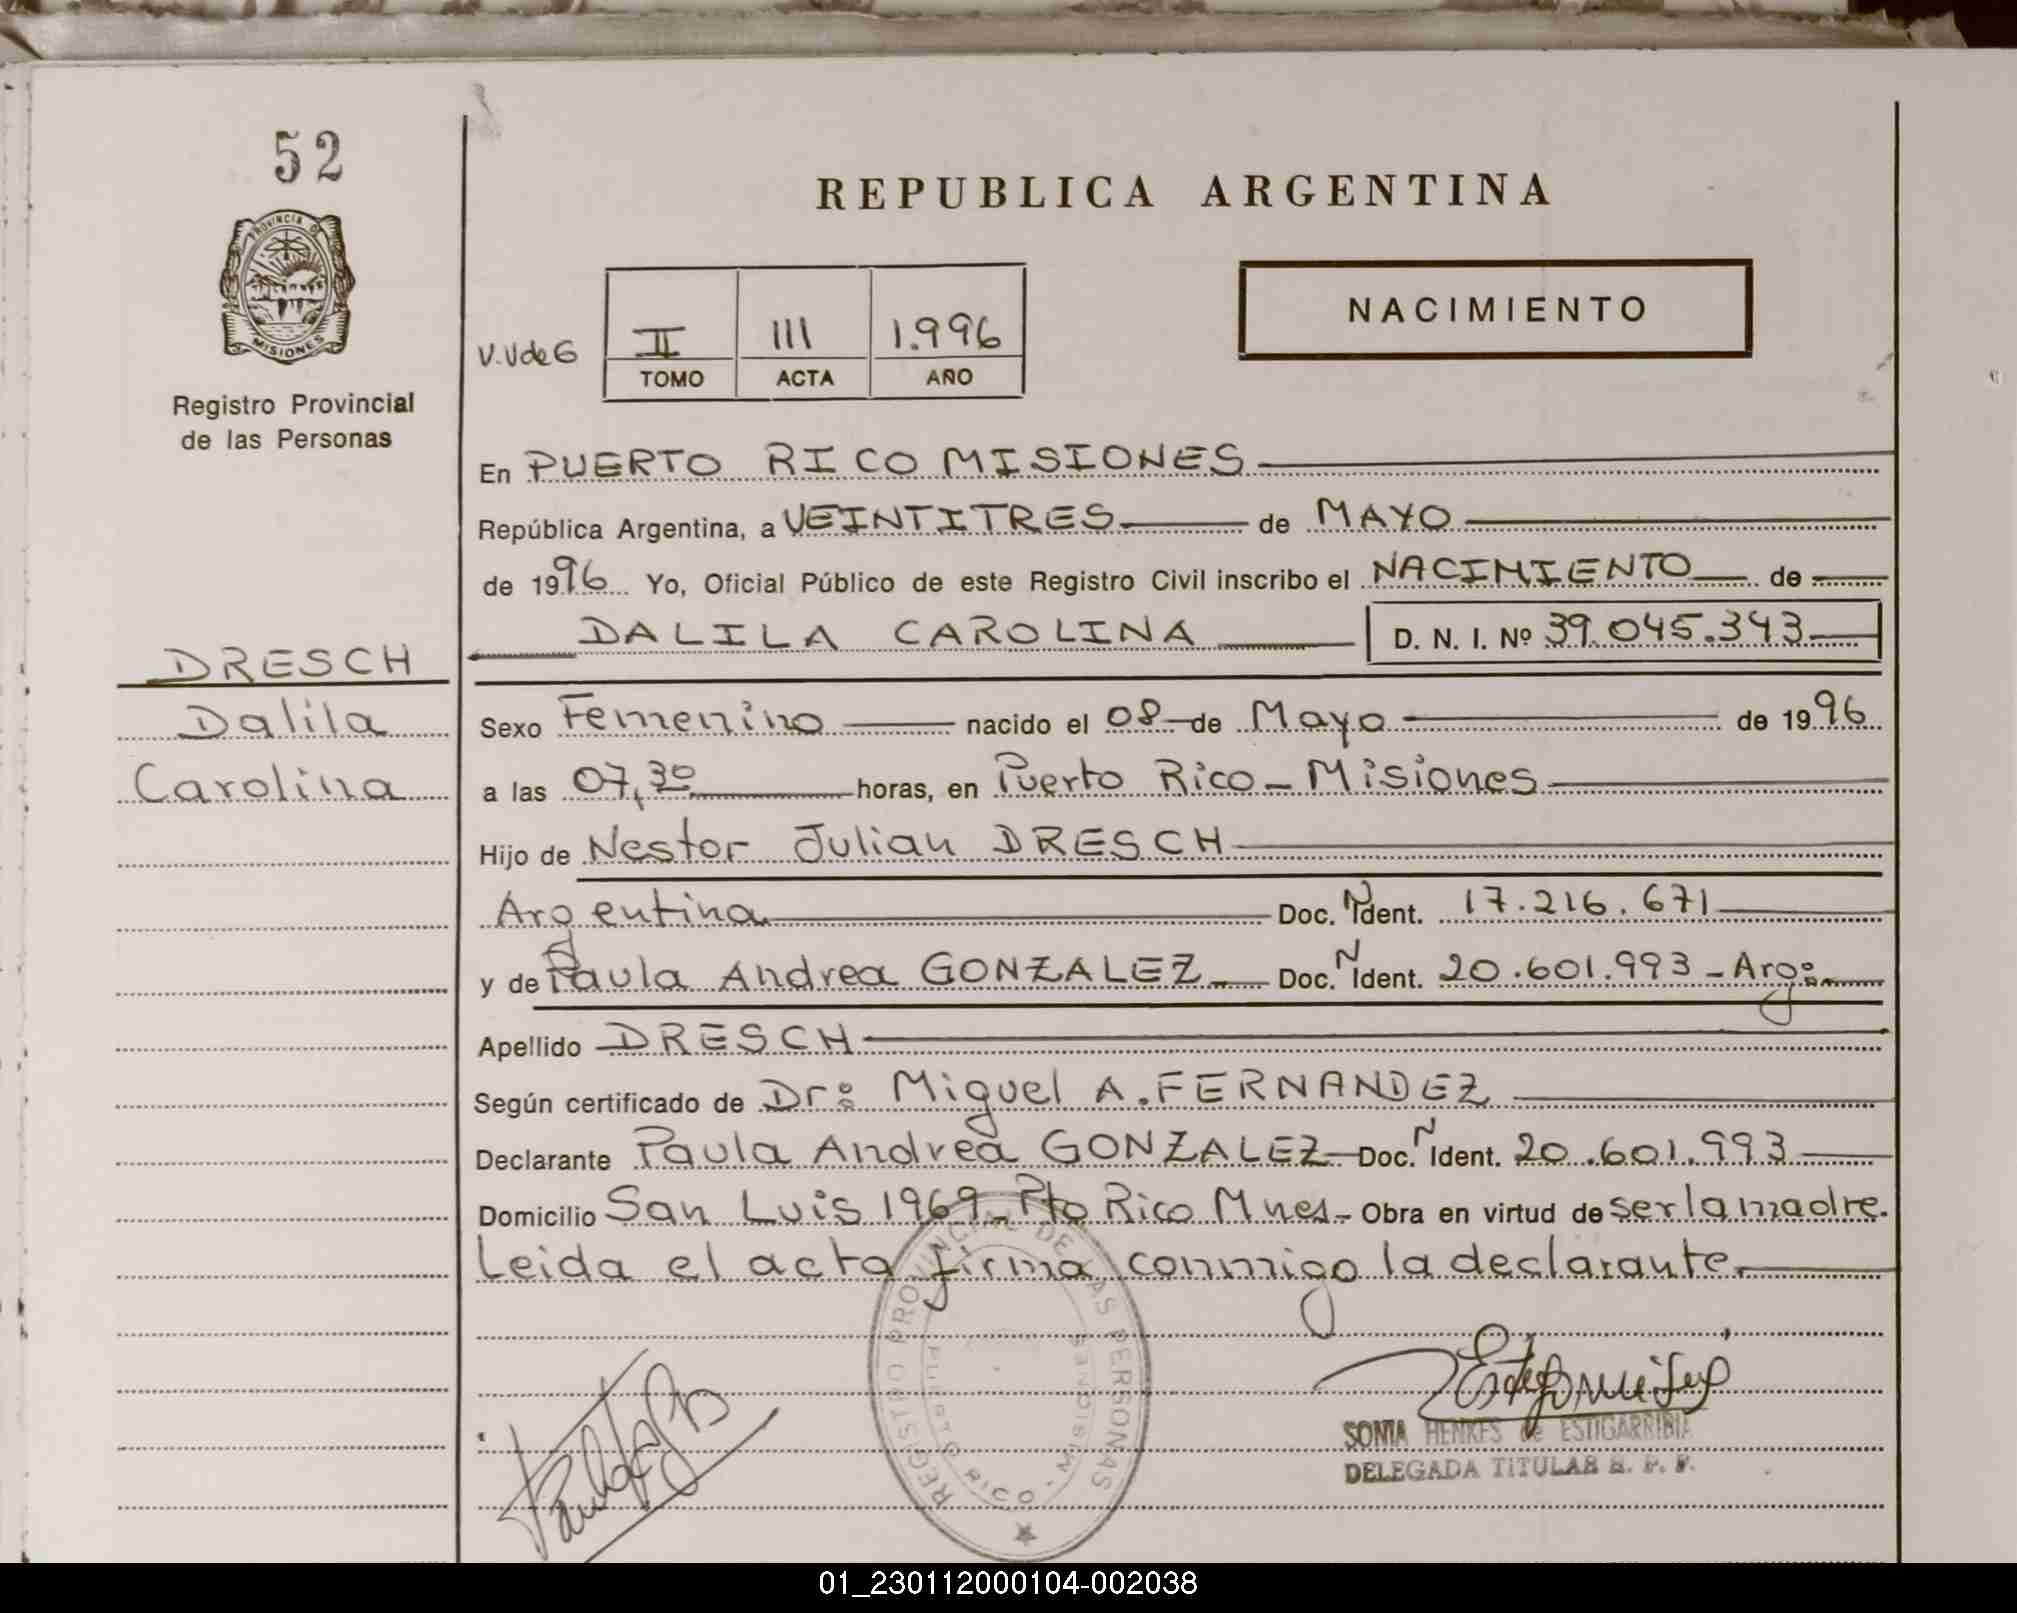 52
PROVINCIA DE
MISIONES
Registro Provincial
de las Personas
DRESCH
Dalila
Carolina
REPUBLICA ARGENTINA
NACIMIENTO
V.V de G
II III 1.996
TOMO ACTA AÑO
En PUERTO RICO MISIONES
República Argentina, a VEINTITRES de MAYO
de 1996 Yo, Oficial Público de este Registro Civil inscribo el NACIMIENTO de
DALILA CAROLINA D. N. I. Nº 39.045.343
Sexo Femenino nacido el 08 de Mayo de 1996
a las 07,30 horas, en Puerto Rico - Misiones
Hijo de Nestor Julian DRESCH
Argentina Doc. N Ident. 17.216.671
y de Paula Andrea GONZALEZ Doc. N Ident. 20.601.993 - Arg:
Apellido DRESCH
Según certificado de Dr: Miguel A. FERNANDEZ
Declarante Paula Andrea GONZALEZ Doc. N Ident. 20.601.993
Domicilio San Luis 1969 - Pto Rico Mnes - Obra en virtud de ser la madre.
Leida el acta firma conmigo la declarante.
REGISTRO PROVINCIAL DE LAS PERSONAS
PUERTO RICO - MISIONES
SONIA HENKES de ESTIGARRIBIA
DELEGADA TITULAR R. P. P.
01_230112000104-002038